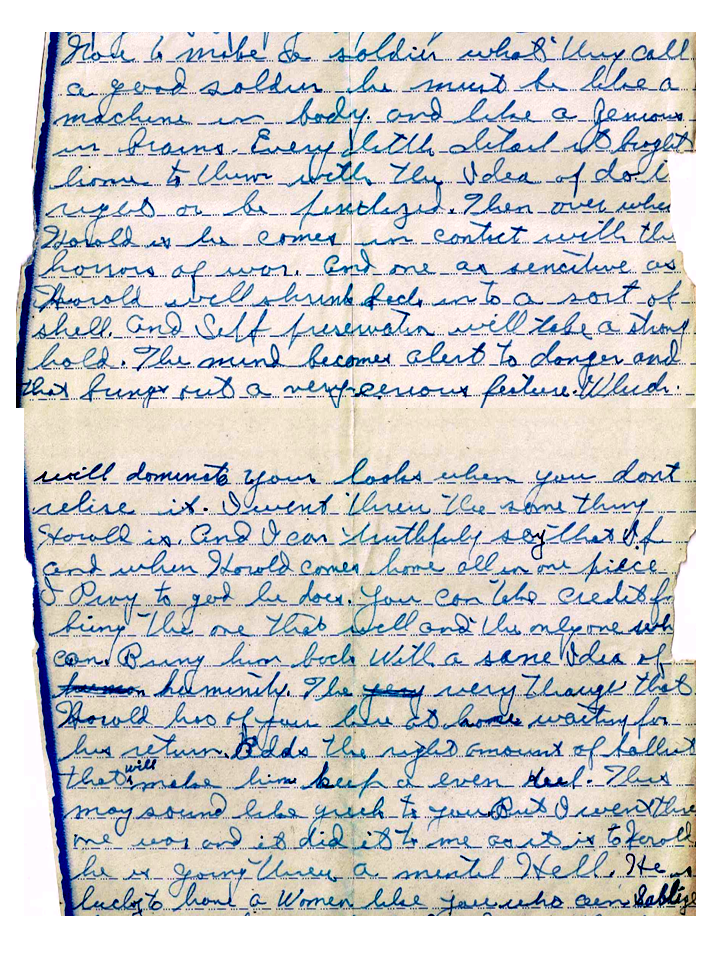 How to make a soldier what they call
a good soldier he must be like a
machine in body. and like a Jenious
in brains. Every little detail is brought
home to them with the Idea of do it
right or be penelized. Then over where
Harold is he comes in contact with the
horrors of war. And one as sensitive as
Harold will shrink back in to a sort of
shell. And Self preservation will take a strong
hold. The mind becomes alert to danger and
that brings out a very serious feature. Which
will dominate your looks when you dont
relise it. I went threw the same thing
Harold is. And I can truthfuly say that if
and when Harold comes home all in one piece
I Pray to god he does. You can take credit for
being the one that will and the only one who
can. Bring him back With a sane Idea of
huminity. The very thought that
Harold has of you here at home waiting for
his return. Adds the right amount of ballist
that will make him keep a even keel. This
may sound like greek to you. But I went threw
one war and it did it to me as it is to Harold
he is going threw a mental Hell. He is
lucky to have a Women like you who can